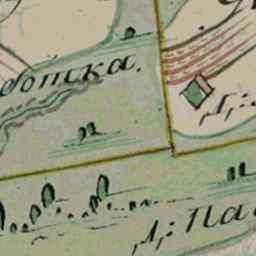 ботка.
Д:
Д: Па